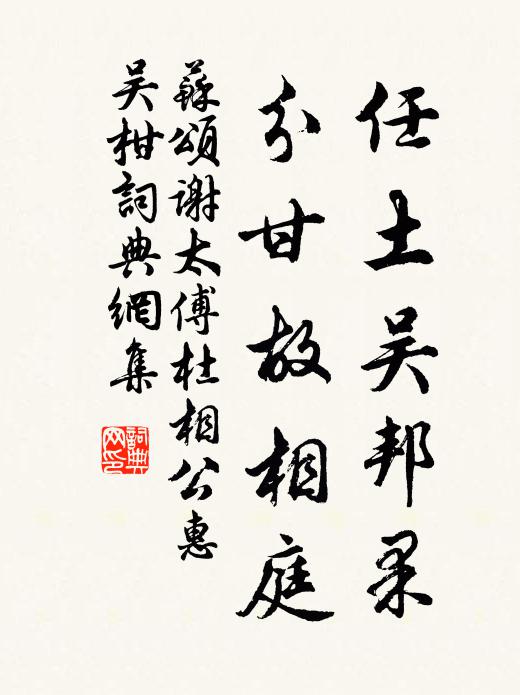 任土吴邦果
分甘故相庭
蘇頌謝太傅杜相公惠
吴柑詞典網集
詞典
网印